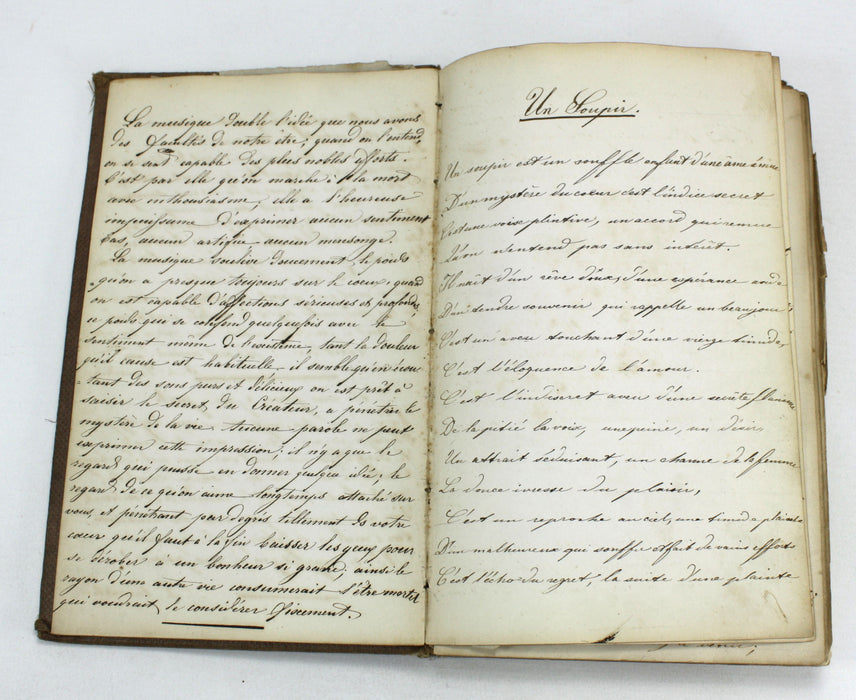 La musique double l'idée que nous avons
des facultés de notre être; quand on l'entend,
on se sent capable des plus nobles efforts.
C'est par elle qu'on marche à la mort
avec enthousiasme; elle a l'heureuse
impuissance d'exprimer aucun sentiment
bas, aucun artifice aucun mensonge.
La musique soulève doucement le poids
qu'on a presque toujours sur le coeur, quand
on est capable d'affections sérieuses et profondes
ce poids qui se confond quelquefois avec le
sentiment même de l'existence, tant la douleur
qu'il cause est habituelle, il semble qu'en écou
tant des sons purs et délicieux on est prêt à
saisir le secret du Créateur, a penetrer le
mystère de la vie. Aucune parole ne peut
exprimer cette impression; il n'y a que le
regard qui puisse en donner quelque idée; le
regard de ce qu'on aime longtemps attaché sur
vous, et pénétrant par degrés tellement dans votre
coeur qu'il faut à la fin baisser les yeux pour
se dérober à un bonheur si grand; ainsi le
rayon d'une autre vie consumerait l'être mortel
qui voudrait le considérer fixement.
Un Soupir.
Un soupir est un souffle enfant d'une âme émue
D'un mystère du coeur c'est l'indice secret
C'est une voix plintive, un accord qui remue
Qu'on n'entend pas sans interêt.
Il naît d'un rêve doux, d'une espérance
D'un tendre souvenir qui rappelle un beau jour
C'est un aveu touchant d'une vierge timide,
C'est l'éloquence de l'amour.
C'est l'indiscret aveu d'une secrète flamme
De la pitié la voix, une prière, un désir,
Un attrait séduisant, un charme de la femme
La douce ivresse du plaisir,
C'est un reproche au ciel, une timide plainte
D'un malheureux qui souffre et fait de vains efforts
C'est l'écho du regret, la suite d'une plainte